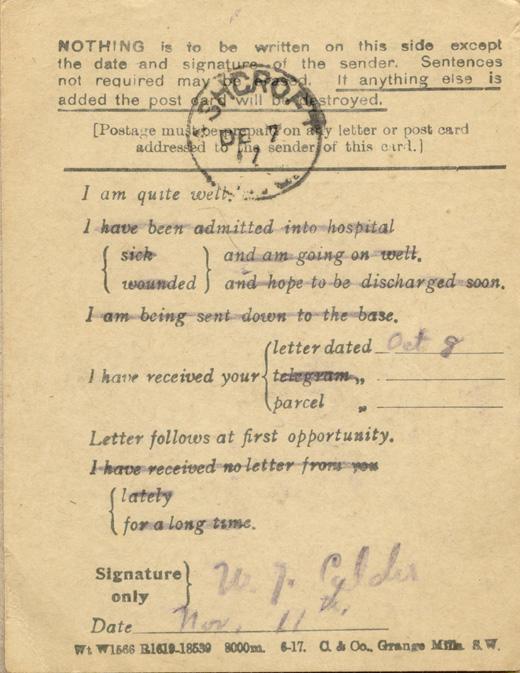 NOTHING is to be written on this side except
the date and signature of the sender. Sentences
not required may be erased. If anything else is
added the post card will be destroyed.
SHCROFT
DE 7
17
[Postage must be prepaid on any letter or post card
addressed to the sender of this card.]
I am quite well.
I have been admitted into hospital
{ sick } and am going on well.
{ wounded } and hope to be discharged soon.
I am being sent down to the base.
I have received your { letter dated Oct 8
telegram „
parcel „
Letter follows at first opportunity.
I have received no letter from you
{ lately
{ for a long time.
Signature only } W. J.
Date Nov. 11th.
Wt W1566 R1619-18539 8000m. 6-17. C. & Co., Grange Mills. S.W.